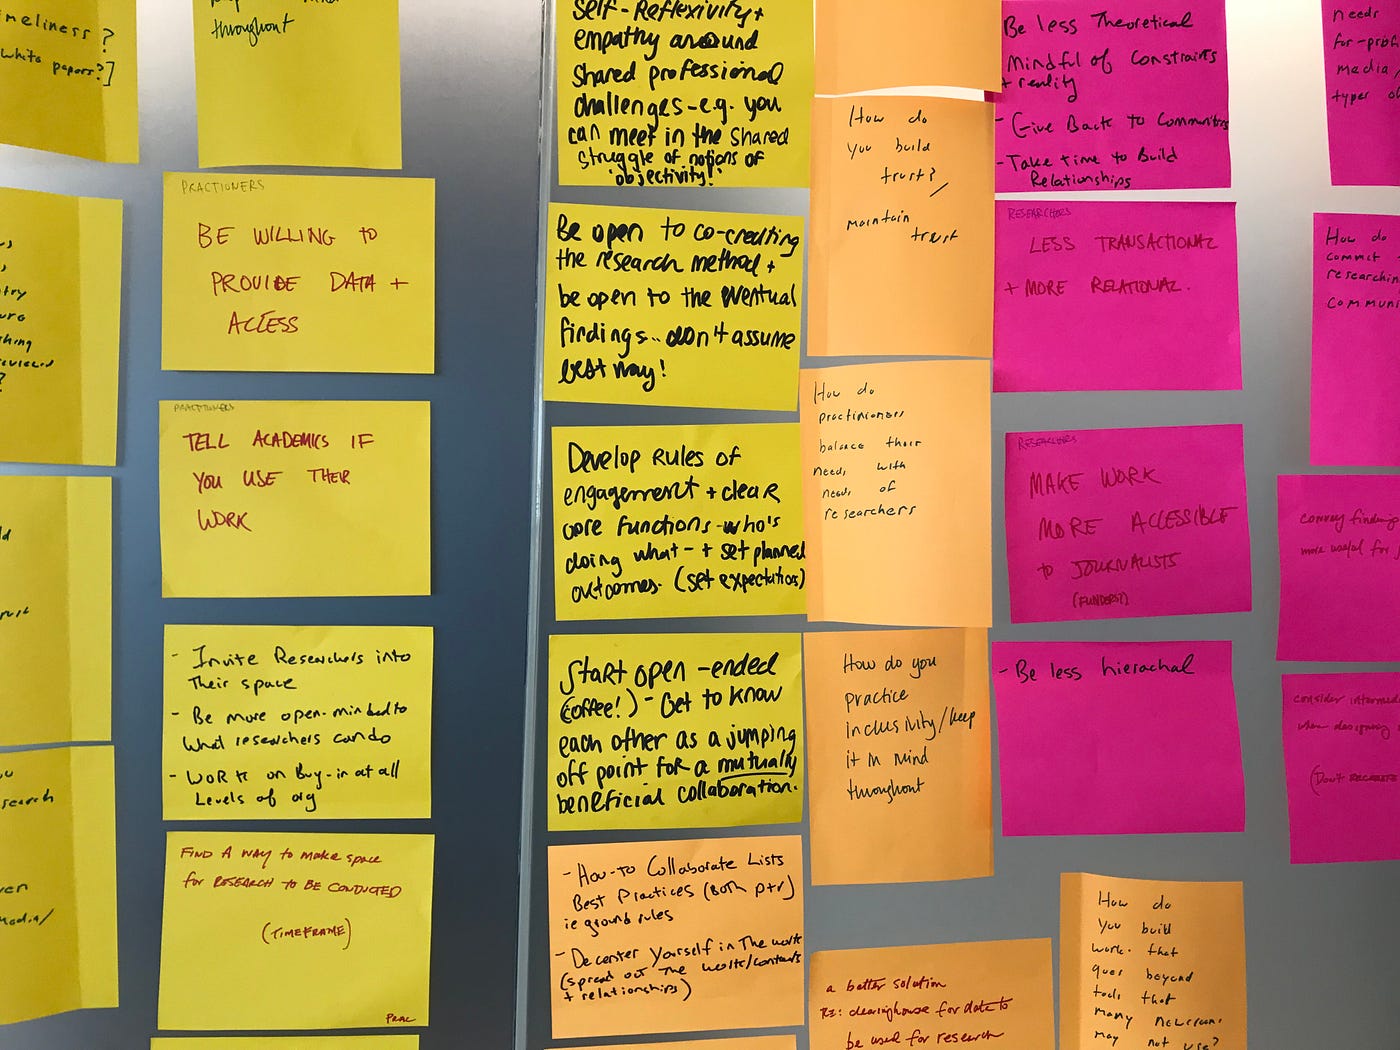 timeliness?
white papers?]
throughout
Self-Reflexivity +
empathy around
Shared professional
challenges - e.g. you
can meet in the shared
struggle of notions of
"objectivity!"
Be less Theoretical
Mindful of Constraints
+ reality
- Give Back to Communities
- Take time to Build
Relationships
needs
for-prof
media/
types o
How do
you build
trust?
maintain
trust
PRACTIONERS
BE WILLING to
PROVIDE DATA +
ACCESS
Be open to co-creating
the research method +
be open to the eventual
findings... don't assume
best way!
RESEARCHERS
LESS TRANSACTIONAL
+ MORE RELATIONAL.
How do
commit
researchin
communi
PRACTITIONERS
TELL ACADEMICS IF
YOU USE THEIR
WORK
Develop Rules of
engagement + clear
core functions - who's
doing what - + set planned
outcomes. (set expectations)
How do
practitioners
balance their
needs with
needs of
researchers
RESEARCHERS
MAKE WORK
MORE ACCESSIBLE
to JOURNALISTS
(FUNDERS?)
convey finding
more useful for
- Invite Researchers into
Their space
- Be more open-minded to
what researchers can do
- Work on Buy-in at all
Levels of org
Start open-ended
(coffee!) - Get to know
each other as a jumping
off point for a mutually
beneficial collaboration.
How do you
practice
inclusivity/keep
it in mind
throughout
- Be less hierachal
consider intermed
when designing
(Don't RECREATE
search
Media/
FIND A WAY to make space
for RESEARCH TO BE CONDUCTED
(TIMEFRAME)
PRAC
- How-to Collaborate Lists
Best Practices (Both p+r)
ie ground rules
- Decenter Yourself in The work
(spread out the work/contacts
+ relationships)
a better solution
RE: clearinghouse for data to
be used for research
How do
you build
work that
goes beyond
tools that
many newsrooms
may not use?